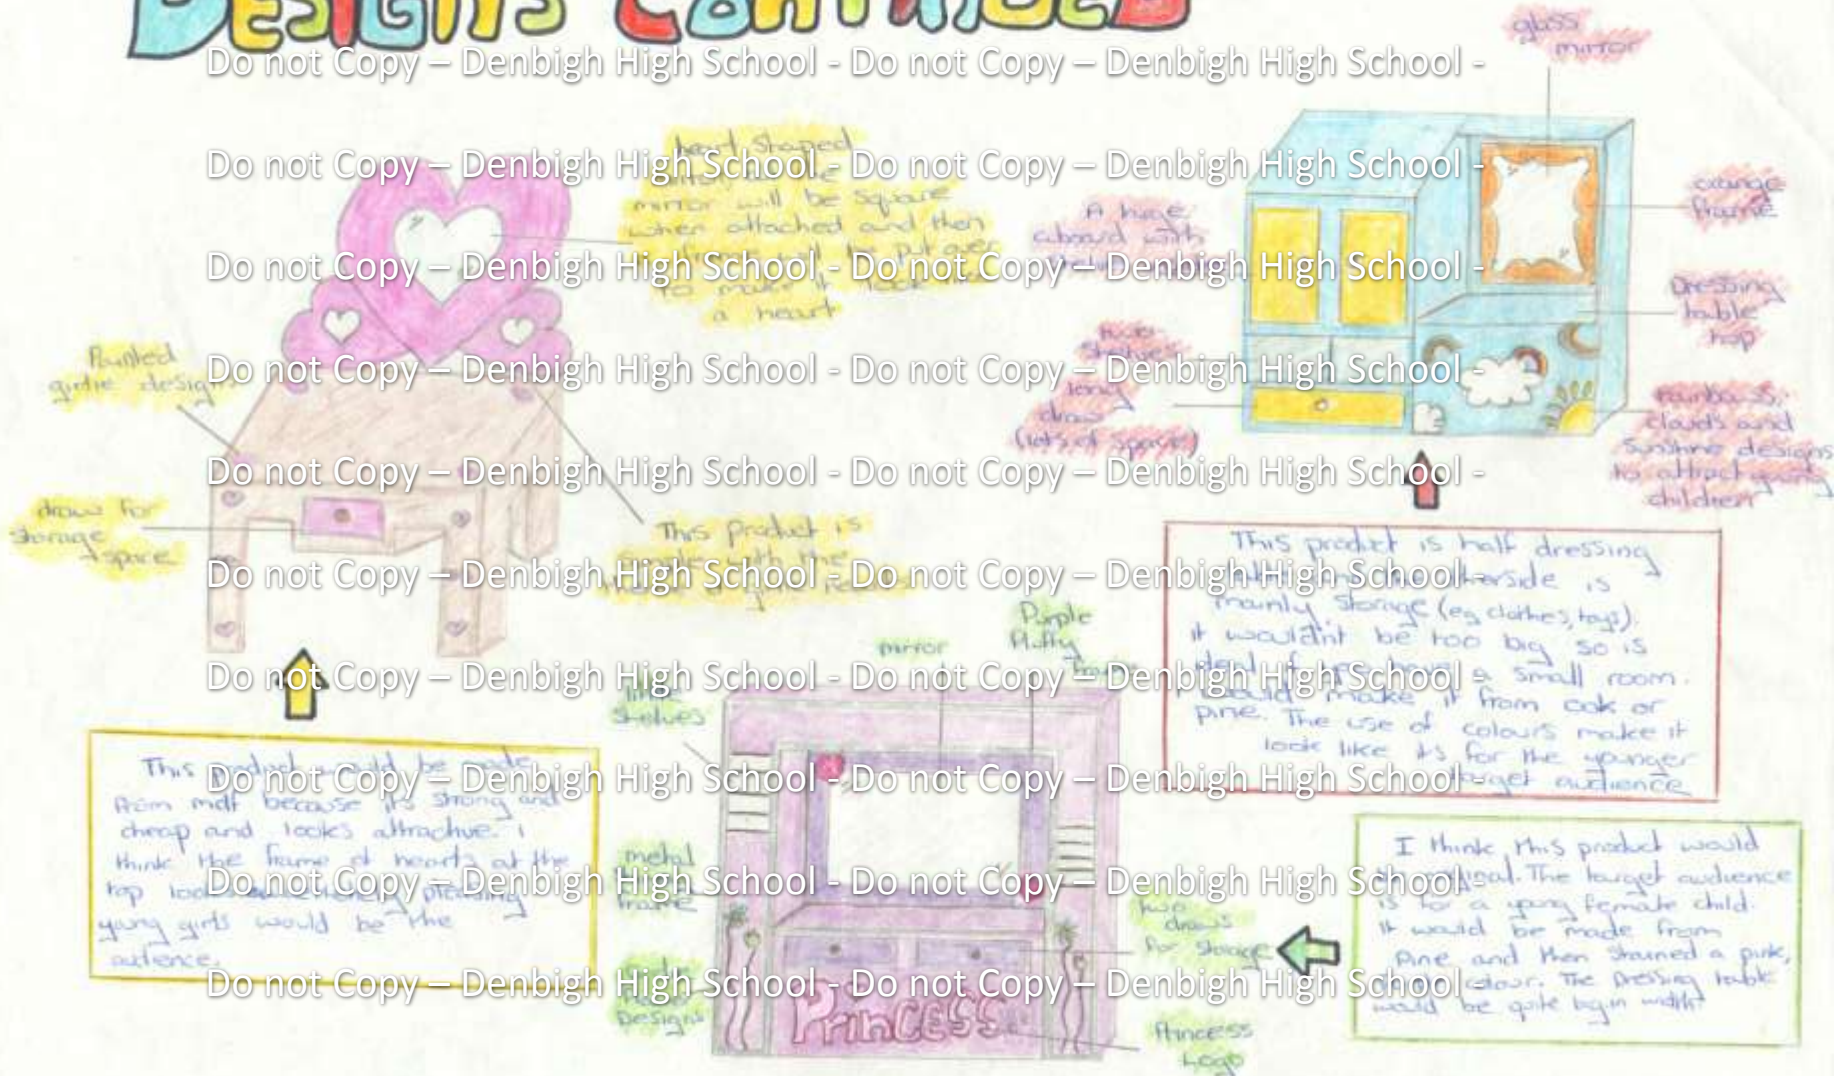 Designs Continued
Do not Copy – Denbigh High School - Do not Copy – Denbigh High School -
Do not Copy – Denbigh High School - Do not Copy – Denbigh High School -
Do not Copy – Denbigh High School - Do not Copy – Denbigh High School -
Do not Copy – Denbigh High School - Do not Copy – Denbigh High School -
Do not Copy – Denbigh High School - Do not Copy – Denbigh High School -
Do not Copy – Denbigh High School - Do not Copy – Denbigh High School -
Do not Copy – Denbigh High School - Do not Copy – Denbigh High School -
Do not Copy – Denbigh High School - Do not Copy – Denbigh High School -
Do not Copy – Denbigh High School - Do not Copy – Denbigh High School -
Do not Copy – Denbigh High School - Do not Copy – Denbigh High School -
heart shaped
mirror will be square
when attached and then
to make it look like
a heart
Painted
girlie designs
draw for
storage
space
This product is
simple with the
glass
mirror
orange
frame
A huge
cuboard with
Dressing
table
top
two
shelves
long
draw
(lots of space)
rainbows,
clouds and
sunshine designs
to attract young
children
This product is half dressing
otherside is
mainly storage (eg clothes, toys).
it wouldn't be too big so is
ideal if you have a small room.
I would make it from oak or
pine. The use of colours make it
look like its for the younger
target audience
This product would be made
from mdf because its strong and
cheap and looks attractive. I
think the frame of hearts at the
top looks pleasing
young girls would be the
audience.
mirror
Purple
fluffy
frame
little
shelves
metal
frame
Designs
two
draws
for storage
Princess
Logo
Princess
I think this product would
The target audience
is for a young female child.
It would be made from
pine and then stained a pink,
colour. The Dressing table
would be quite big in width